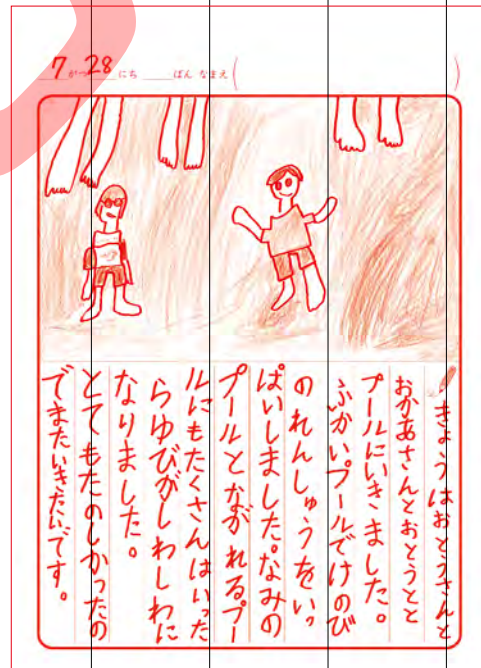 7がつ28にち　ばん なまえ(　)
きょうはおとうさんと
おかあさんとおとうとと
プールにいきました。
ふかいプールでけのび
のれんしゅうをいっ
ぱいしました。なみの
プールとながれるプー
ルにもたくさんはいった
らゆびがしわしわに
なりました。
とてもたのしかったの
でまたいきたいです。